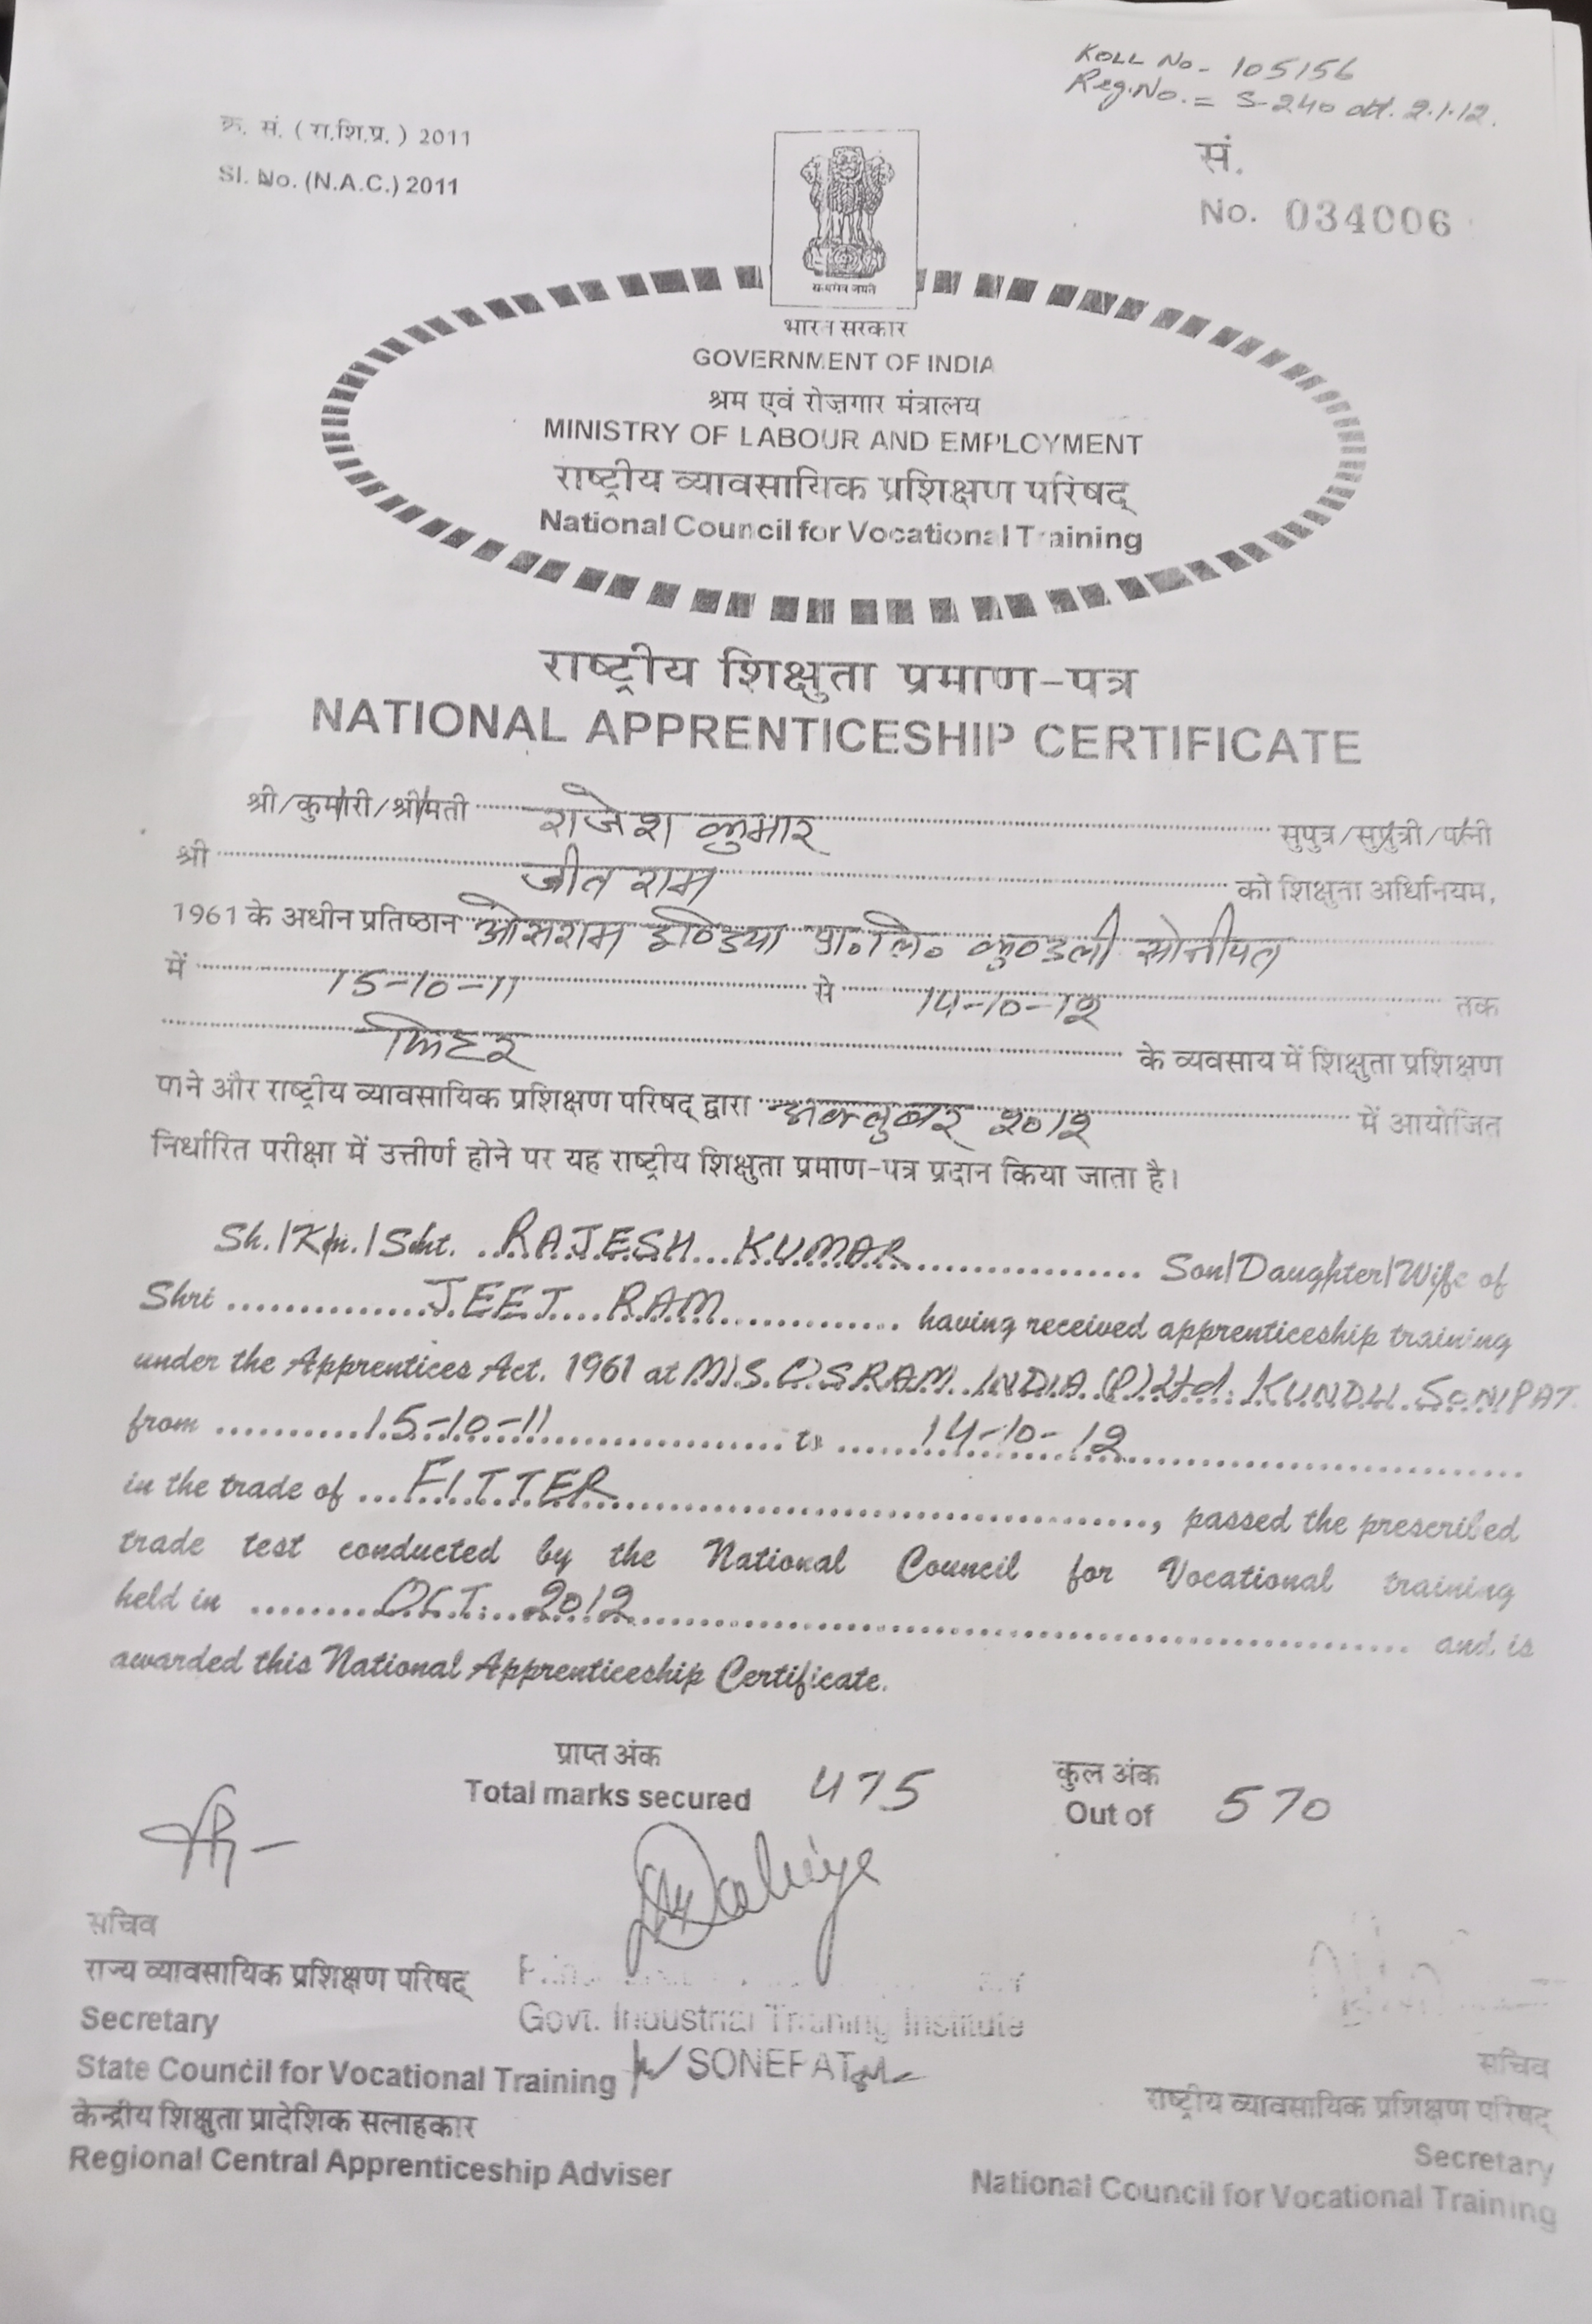 ROLL No - 105156
Reg. No. = S-240 dt. 2.1.12.
क्र. सं. (रा.शि.प्र.) 2011
Sl. No. (N.A.C.) 2011
सं.
No. 034006
सत्यमेव जयते
भारत सरकार
GOVERNMENT OF INDIA
श्रम एवं रोज़गार मंत्रालय
MINISTRY OF LABOUR AND EMPLOYMENT
राष्ट्रीय व्यावसायिक प्रशिक्षण परिषद्
National Council for Vocational Training
राष्ट्रीय शिक्षुता प्रमाण-पत्र
NATIONAL APPRENTICESHIP CERTIFICATE
श्री/कुमारी/श्रीमती राजेश कुमार सुपुत्र/सुपुत्री/पत्नी
श्री जीत राम को शिक्षुता अधिनियम,
1961 के अधीन प्रतिष्ठान ओसराम इण्डिया प्रा॰ लि॰ कुण्डली सोनीपत
में 15-10-11 से 14-10-12 तक
फिटर के व्यवसाय में शिक्षुता प्रशिक्षण
पाने और राष्ट्रीय व्यावसायिक प्रशिक्षण परिषद् द्वारा अक्तुबर 2012 में आयोजित
निर्धारित परीक्षा में उत्तीर्ण होने पर यह राष्ट्रीय शिक्षुता प्रमाण-पत्र प्रदान किया जाता है।
Sh./Km./Smt. RAJESH KUMAR Son/Daughter/Wife of
Shri JEET RAM having received apprenticeship training
under the Apprentices Act. 1961 at M/S. OSRAM INDIA (P) Ltd. KUNDLI SONIPAT.
from 15-10-11 to 14-10-12
in the trade of FITTER, passed the prescribed
trade test conducted by the National Council for Vocational training
held in OCT. 2012 and is
awarded this National Apprenticeship Certificate.
प्राप्त अंक
Total marks secured 475
कुल अंक
Out of 570
Dahiya
सचिव
राज्य व्यावसायिक प्रशिक्षण परिषद्
Secretary
State Council for Vocational Training
केन्द्रीय शिक्षुता प्रादेशिक सलाहकार
Regional Central Apprenticeship Adviser
Govt. Industrial Training Institute
SONEPAT
सचिव
राष्ट्रीय व्यावसायिक प्रशिक्षण परिषद्
Secretary
National Council for Vocational Training